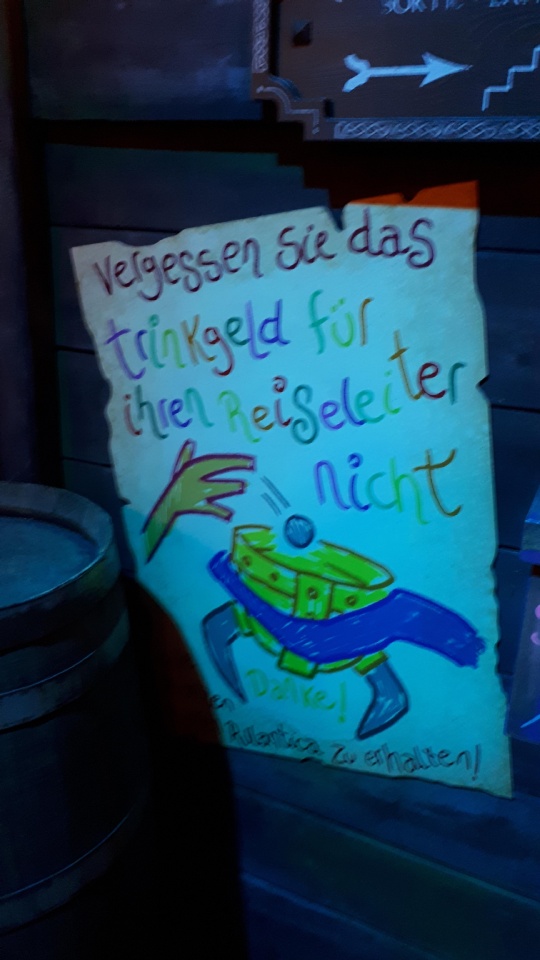 SORTIE
vergessen Sie das
trinkgeld für
ihren Reiseleiter
nicht
Danke!
en
Rulantica zu erhalten!